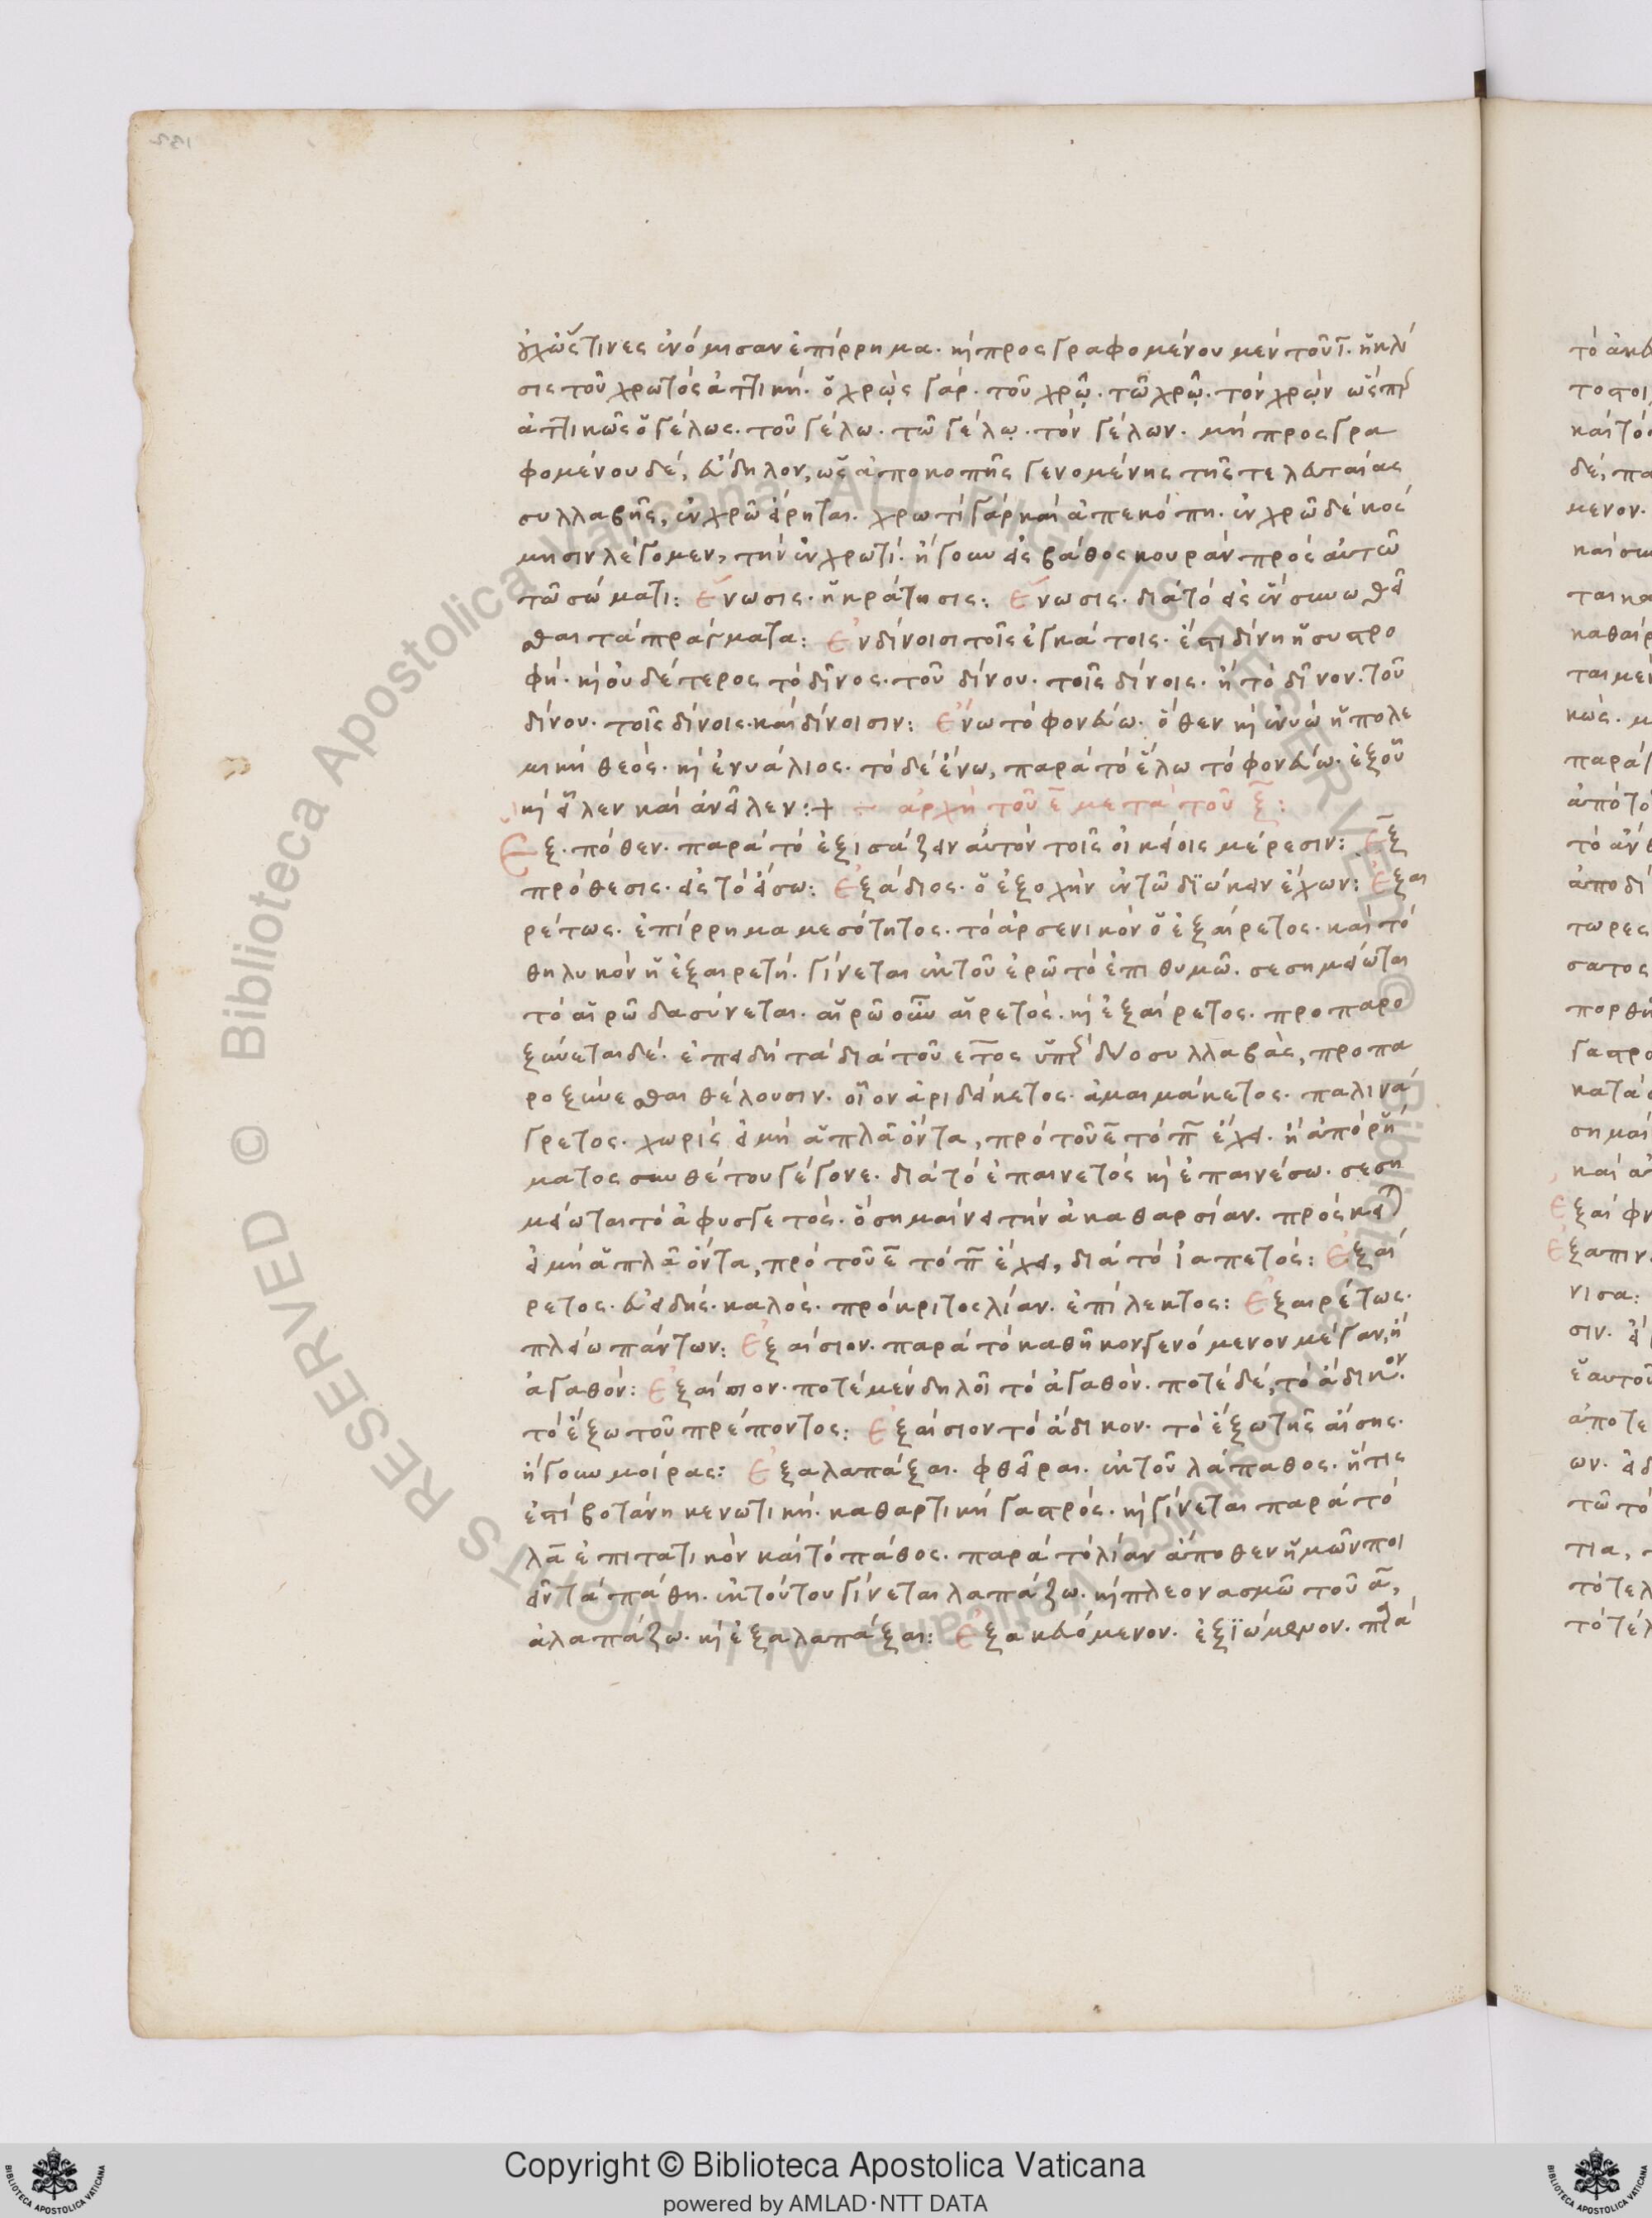 οὐχ ὥς τινες ἐνόμισαν ἐπίρρημα. καὶ προσγραφομένου μὲν τοῦ ϊ. ἡ κλί
σις τοῦ χρωτός ἀττική. ὁ χρῴς γάρ. τοῦ χρῷ. τῶ χρῷ. τόν χρῴν ὥσπερ
ἀττικῶς ὁ γέλως. τοῦ γέλω. τῶ γέλῳ. τόν γέλων. μή προσγρα
φομένου δέ, εὔδηλον, ὡς ἀποκοπῆς γενομένης τῆς τελευταίας
συλλαβῆς, ἐν χρῶ εἴρηται. χρωτί γάρ καί ἀπεκόπη. ἐν χρῶ δέ κόσ
μησιν λέγομεν, τήν ἐν χρωτί. ἤγουν εἰς βάθος κουράν πρός αὐτῶ
τῶ σώματι: Ἕνωσις. ἡ κράτησις: Ἕνωσις. διά τό εἰς ἕν συνωθεῖ
σθαι τά πράγματα: Ἐν δίνοισι τοῖς ἐγκάτοις. ἔστι δίνη ἡ συστρο
φή. καὶ οὐδέτερος τό δῖνος. τοῦ δίνου. τοῖς δίνοις. ἢ τό δῖνον. τοῦ
δίνου. τοῖς δίνοις. καί δίνοισιν: Ἐνω τό φονεύω. ὅθεν καὶ ἐνυώ ἡ πολε
μική θεός. καὶ ἐνυάλιος. τό δέ ἔνω, παρά τό ἕλω τό φονεύω. ἐξ οὗ
καὶ εἷλεν καί ἀνεῖλεν:+ ÷ ἀρχή τοῦ ε̄ μετά τοῦ ξ̄:
Ἓξ. πόθεν. παρά τό ἐξισάζειν αὐτόν τοῖς οἰκείοις μέρεσιν: Ἓξ
πρόθεσις. εἰς τό εἴσω: Ἐξάδιος. ὁ ἐξοχήν ἐν τῶ διώκειν ἔχων: Ἐξαι
ρέτως. ἐπίρρημα μεσότητος. τό ἀρσενικόν ὁ ἐξαίρετος. καί τό
θηλυκόν ἡ ἐξαιρετή. γίνεται ἐκ τοῦ ἐρῶ τό ἐπιθυμῶ. σεσημείωται
τό αἱρῶ δασύνεται. αἱρῶ οὖν αἱρετός. καὶ ἐξαίρετος. προπαρο
ξύνεται δέ. ἐπειδή τά διά τοῦ ετος ὑπέρ δύο συλλαβάς, προπα
ροξύνεσθαι θέλουσιν. οἷον ἀριδείκετος. ἀμαιμάκετος. παλινά
γρετος. χωρίς εἰ μή ἁπλᾶ ὄντα, πρό τοῦ ε̄ τό π̄ ἔχει. ἢ ἀπό ῥή
ματος συνθέτου γέγονε. διά τό ἐπαινετός καὶ ἐπαινέσω. σεση
μείωται τό ἀφυσγετός. ὃ σημαίνει τήν ἀκαθαρσίαν. πρόσκειται
εἰ μή ἁπλᾶ ὄντα, πρό τοῦ ε̄ τό π̄ ἔχει, διά τό ἰαπετός: Ἐξαί
ρετος. εὐειδής. καλός. πρόκριτος λίαν. ἐπίλεκτος: Ἐξαιρέτως.
πλείω πάντων: Ἐξαίσιον. παρά τό καθῆκον γενόμενον μέγαν, ἢ
ἀγαθόν: Ἐξαίσιον. ποτέ μέν δηλοῖ τό ἀγαθόν. ποτέ δέ, τό ἄδικον.
τό ἔξω τοῦ πρέποντος: Ἐξαίσιον τό ἄδικον. τό ἔξω τῆς αἴσης.
ἤγουν μοίρας: Ἐξαλαπάξαι. φθεῖραι. ἐκ τοῦ λάπαθος. ἥτις
ἐστί βοτάνη κενωτική. καθαρτική γαστρός. καὶ γίνεται παρά τό
λᾱ ἐπιτατικόν καί τό πάθος. παρά τό λίαν ἄποθεν ἡμῶν ποι
εῖν τά πάθη. ἐκ τούτου γίνεται λαπάζω. καὶ πλεονασμῶ τοῦ ᾱ,
ἀλαπάζω. καὶ ἐξαλαπάξαι: Ἐξακευόμενον. ἐξϊώμενον.